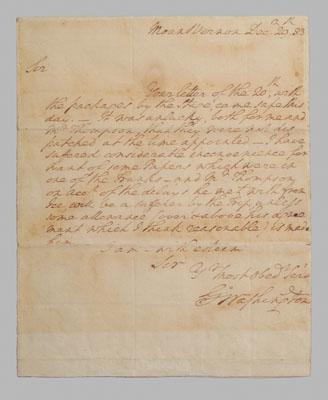 Mount Vernon Dec. 83
Sir
Your letter of the 20th. with
the packages by the came safe this
day. — It was unlucky, both for me and
Mr. Thompson, that they were not dis
patched at the time appointed — I have
suffered considerable inconvenience for
want of some Papers which were in
one of the Trunks, and Mr. Thompson,
on acct. of the delays he met with from
Ice, will be a sufferer by the Trip unless
some allowance (over & above his agree
ment which I think reasonable) is made
him.
I am — with esteem
Sir
Yr. most Obedt. Servt
Go: Washington